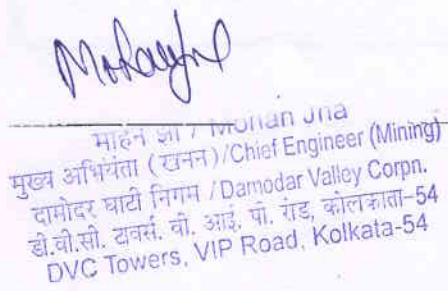 मोहन झा / Mohan Jha
मुख्य अभियंता (खनन)/Chief Engineer (Mining)
दामोदर घाटी निगम / Damodar Valley Corpn.
डी.वी.सी. टावर्स. वी. आई. पी. रोड, कोलकाता-54
DVC Towers, VIP Road, Kolkata-54